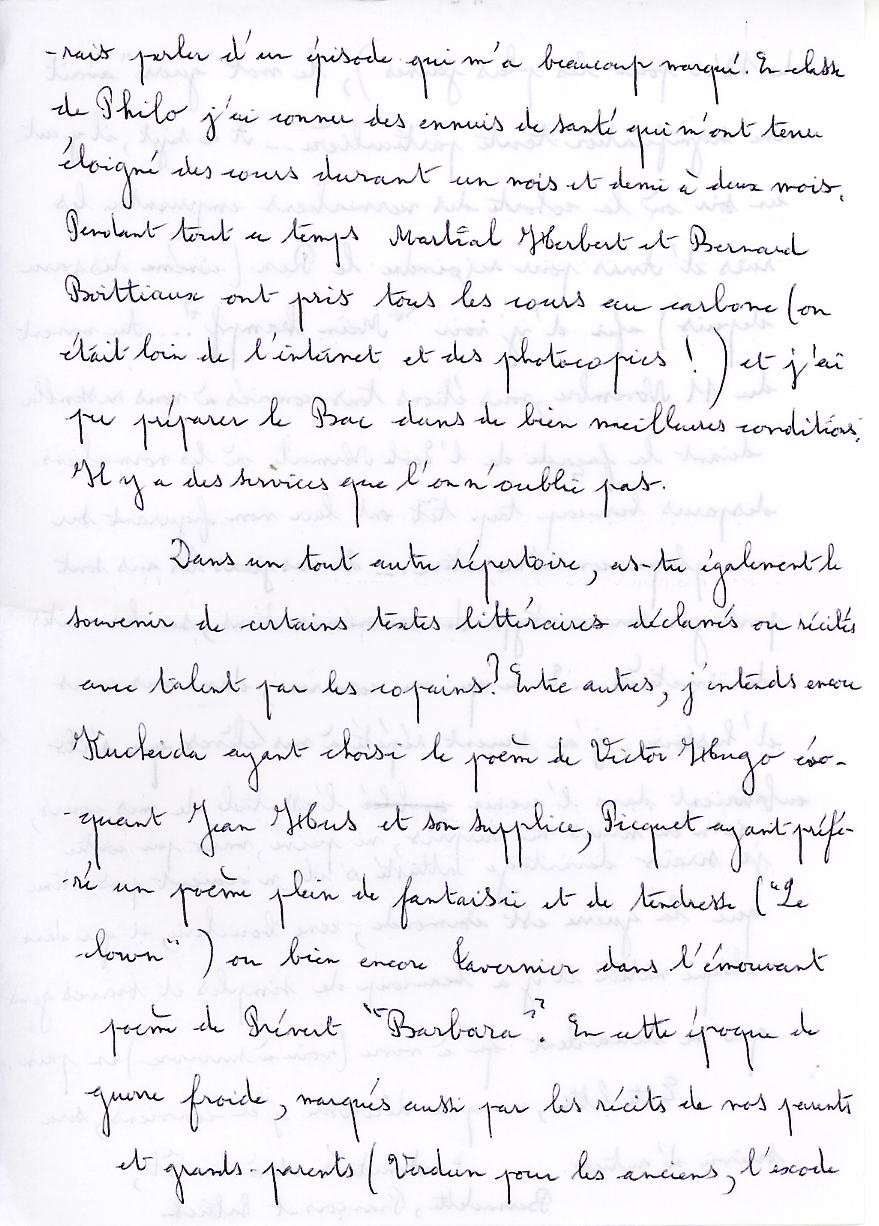 -rais parler d'un épisode qui m'a beaucoup marqué. En classe
de Philo j'ai connu des ennuis de santé qui m'ont tenu
éloigné des cours durant un mois et demi à deux mois.
Pendant tout ce temps Martial Herbert et Bernard
Boittiaux ont pris tous les cours au carbone (on
était loin de l'internet et des photocopies !) et j'ai
pu préparer le Bac dans de bien meilleures conditions.
Il y a des services que l'on n'oublie pas.
Dans un tout autre répertoire, as-tu également le
souvenir de certains textes littéraires déclamés ou récités
avec talent par les copains? Entre autres, j'entends encore
Kucheida ayant choisi le poème de Victor Hugo évo-
-quant Jean Hus et son supplice, Picquet ayant préfé-
-ré un poème plein de fantaisie et de tendresse ("Le
clown") ou bien encore Tavernier dans l'émouvant
poème de Prévert "Barbara"? En cette époque de
guerre froide, marqués aussi par les récits de nos parents
et grands-parents (Verdun pour les anciens, l'exode